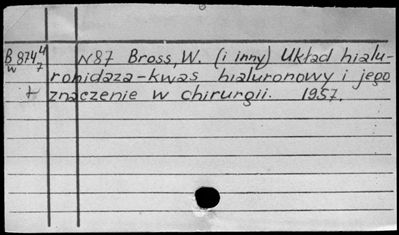 B 874 4 N87 Bross, W. (i inny) Układ hialu-
w 7 ronidaza-kwas hialuronowy i jego
t znaczenie w chirurgii. 1957.